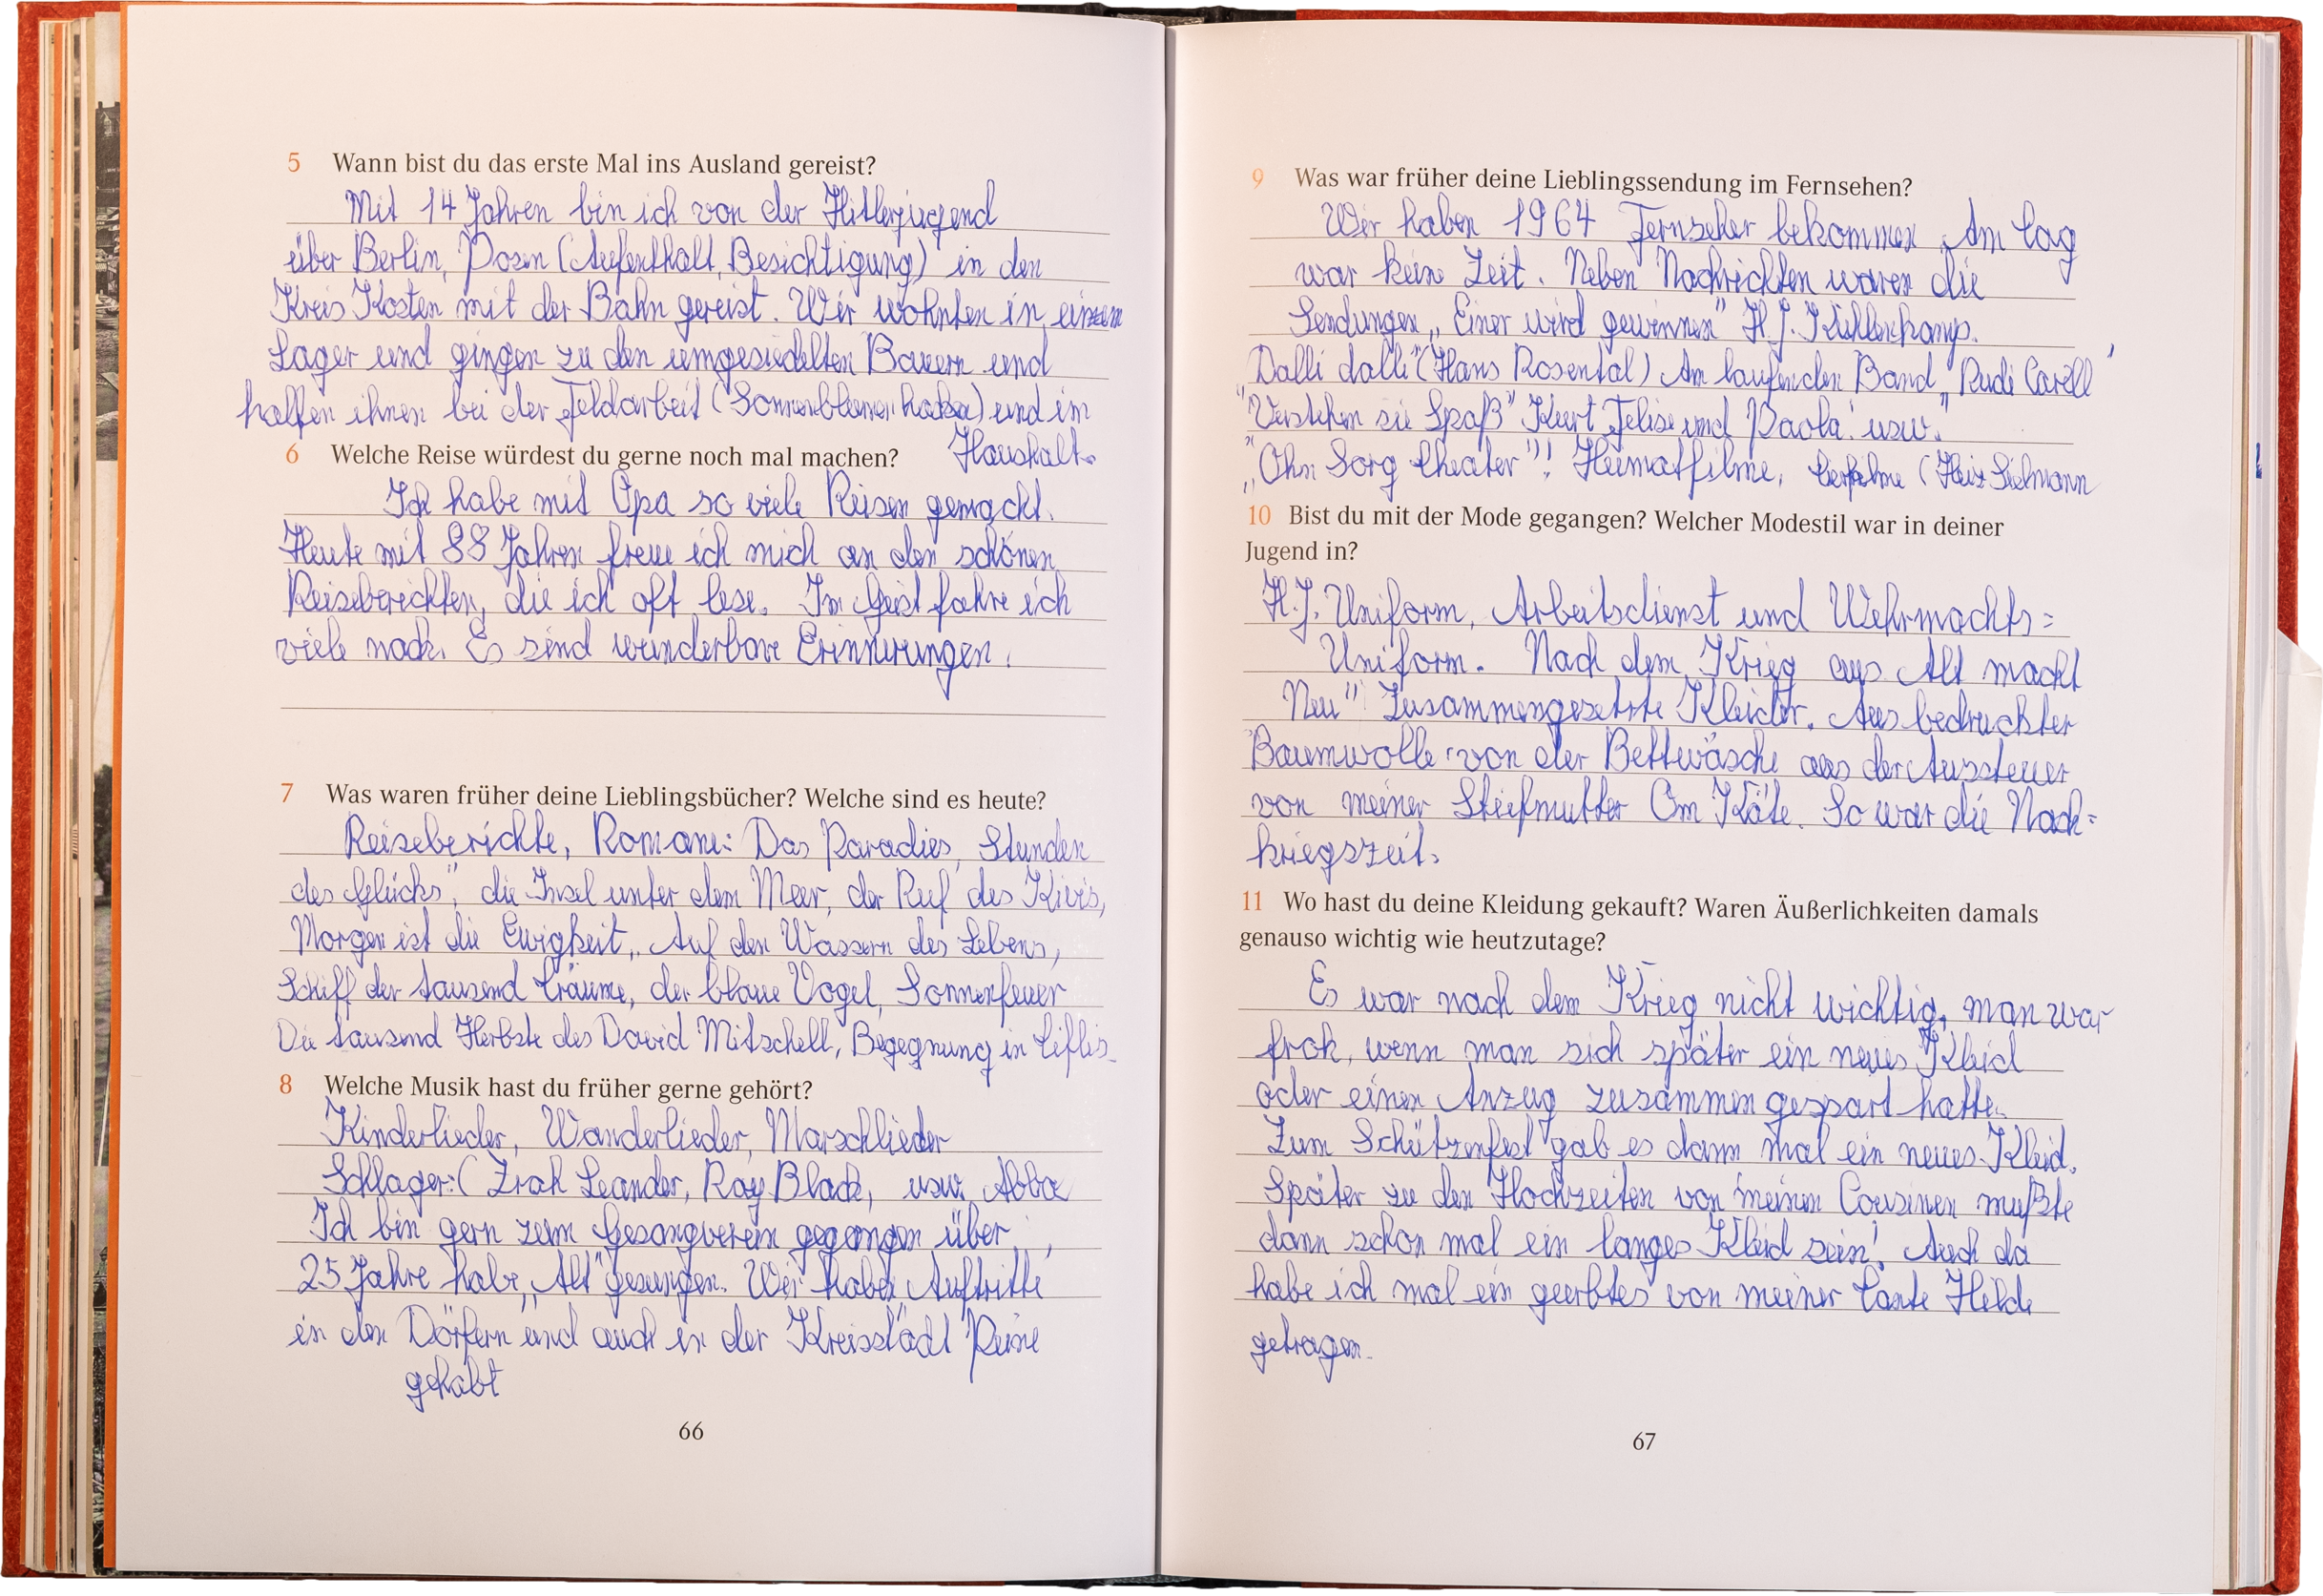 5 Wann bist du das erste Mal ins Ausland gereist?
Mit 14 Jahren bin ich von der Hitlerjugend
über Berlin, Posen (Aufenthalt, Besichtigung) in den
Kreis Kosten mit der Bahn gereist. Wir wohnten in einem
Lager und gingen zu den umgesiedelten Bauern und
halfen ihnen bei der Feldarbeit (Sonnenblumen hacken) und im
Haushalt.
6 Welche Reise würdest du gerne noch mal machen?
Ich habe mit Opa so viele Reisen gemacht.
Heute mit 88 Jahren freue ich mich an den schönen
Reiseberichten, die ich oft lese. Im Geist fahre ich
viele nach. Es sind wunderbare Erinnerungen.
7 Was waren früher deine Lieblingsbücher? Welche sind es heute?
Reiseberichte, Romane: Das Paradies, Stunden
des Glücks", die Insel unter dem Meer, der Ruf des Kivis,
Morgen ist die Ewigkeit, Auf den Wassern des Lebens,
Schiff der tausend Träume, der blaue Vogel, Sonnenfeuer
Die tausend Herbste des David Mitschell, Begegnung in Tiflis
8 Welche Musik hast du früher gerne gehört?
Kinderlieder, Wanderlieder, Marschlieder
Schlager: ( Zrah Leander, Roy Black, usw. Abba
Ich bin gern zum Gesangverein gegangen über
25 Jahre habe „Alt" gesungen. Wir haben Auftritte
in den Dörfern und auch in der Kreisstadt Peine
gehabt
66
9 Was war früher deine Lieblingssendung im Fernsehen?
Wir haben 1964 Fernseher bekommen. Am Tag
war keine Zeit. Neben Nachrichten waren die
Sendungen „Einer wird gewinnen" H. J. Kuhlenkamp.
„Dalli dalli" (Hans Rosental) Am laufenden Band „Rudi Carell"
"Verstehen sie Spaß" Kurt Felise und Paola" usw."
„Ohn Sorg Theater"! Heimatfilme, Tierfilme (Heinz Sielmann
10 Bist du mit der Mode gegangen? Welcher Modestil war in deiner
Jugend in?
H.J. Uniform, Arbeitsdienst und Wehrmachts=
Uniform. Nach dem Krieg aus Alt macht
Neu" Zusammengesetzte Kleider. Aus bedruckter
Baumwolle von der Bettwäsche aus der Aussteuer
von meiner Stiefmutter Om Käte. So war die Nach=
kriegszeit.
11 Wo hast du deine Kleidung gekauft? Waren Äußerlichkeiten damals
genauso wichtig wie heutzutage?
Es war nach dem Krieg nicht wichtig, man war
froh, wenn man sich später ein neues Kleid
oder einen Anzug zusammen gespart hatte.
Zum Schützenfest gab es dann mal ein neues Kleid.
Später zu den Hochzeiten von meinen Cousinen mußte
dann schon mal ein langes Kleid sein! Auch da
habe ich mal ein geerbtes von meiner Tante Hilde
getragen.
67